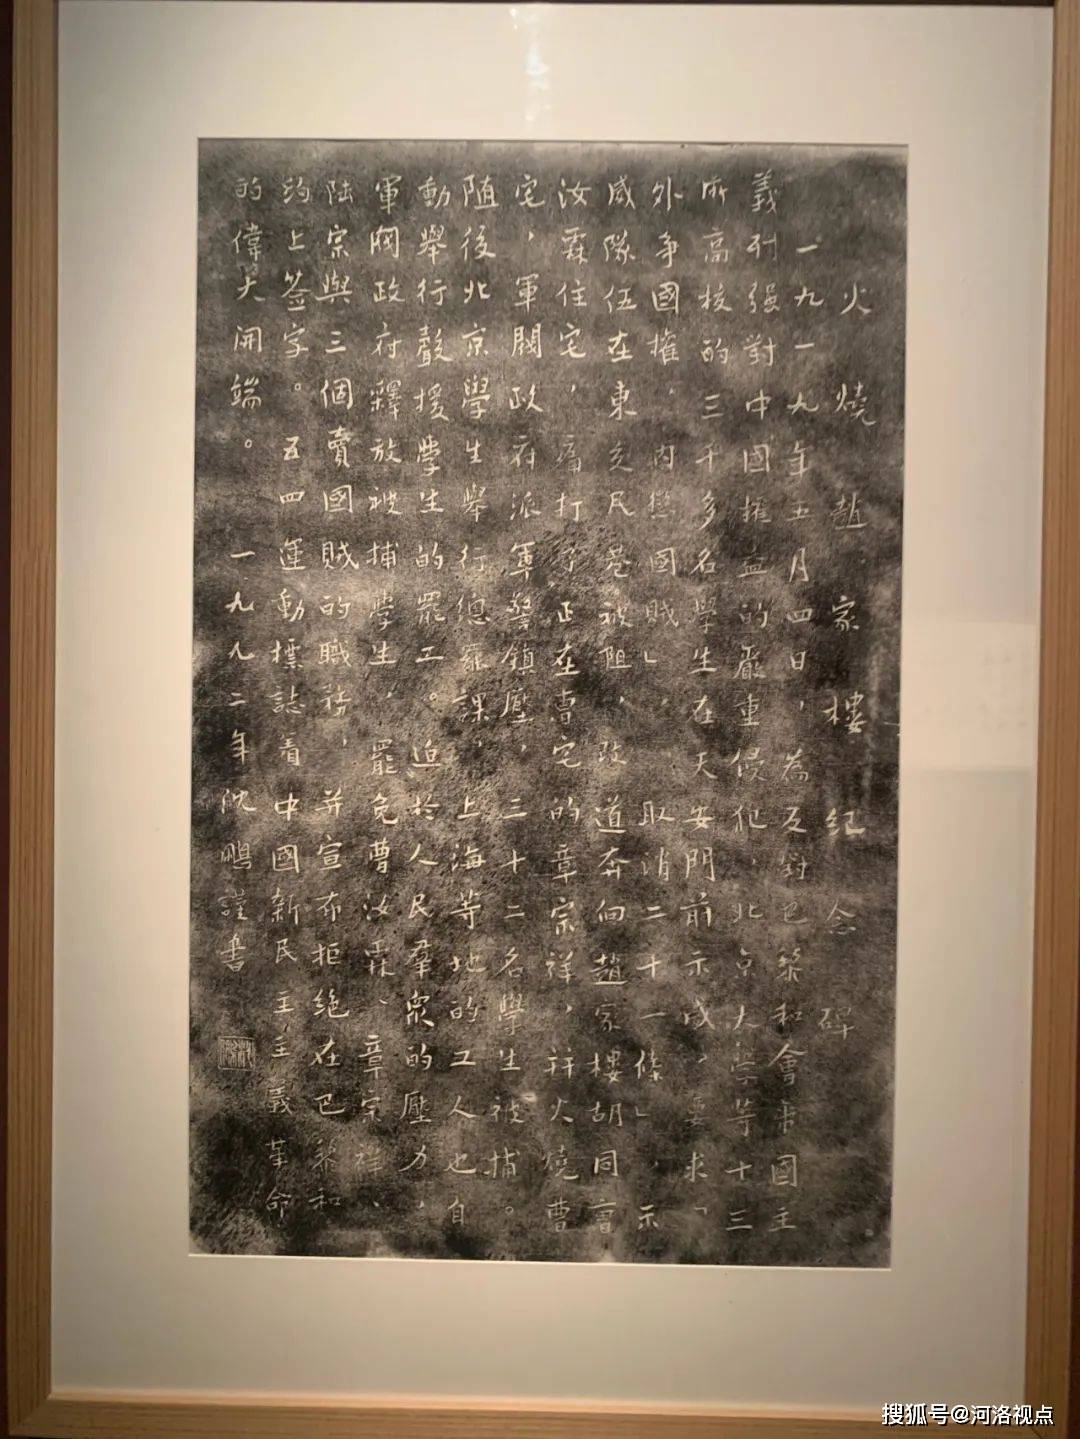 火燒趙家樓紀念碑
一九一九年五月四日，為反對巴黎和會帝國主
義列强對中國權益的嚴重侵犯，北京大學等十三
所高校的三千多名學生在天安門前示威，要求「
外争國權，内懲國賊」，取消二十一條」，示
威隊伍在東交民巷被阻，改道奔向趙家樓胡同曹
汝霖住宅，痛打了正在曹宅的章宗祥，并火燒曹
宅，軍閥政府派軍警鎮壓，三十二名學生被捕。
随後北京學生舉行總罷課，上海等地的工人也自
動舉行聲援學生的罷工。迫於人民羣衆的壓力，
軍閥政府釋放被捕學生，罷免曹汝霖、章宗祥、
陆宗與三個賣國賊的職務，并宣布拒絶在巴黎和
约上签字。五四運動標誌着中國新民主主義革命
的偉大開端。一九九二年沈鵬謹書
搜狐号@河洛视点